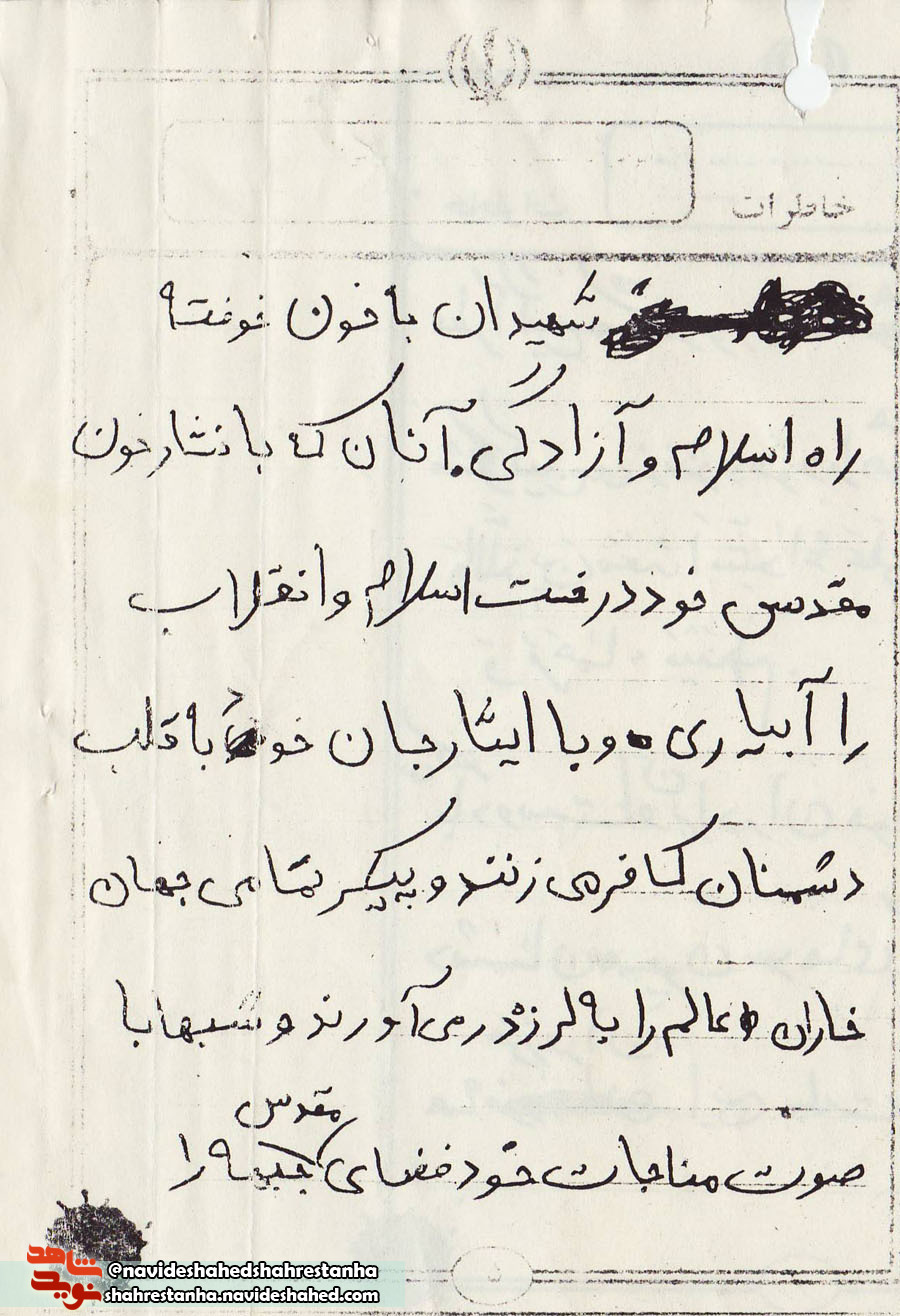 خاطرات
شهیدان با خون خفته
راه اسلام و آزادگی. آنان که با نثار خون
مقدس خود درخت اسلام و انقلاب
را آبیاری و با ایثار جان خود به قلب
دشمنان کافر می زنند و پیکر تمامی جهان
خاران عالم را به لرزه در می آورند و شبها با
مقدس
صوت مناجات خود فضای جبهه را
شاهد
نوید
@navideshahedshahrestanha
shahrestanha.navideshahed.com